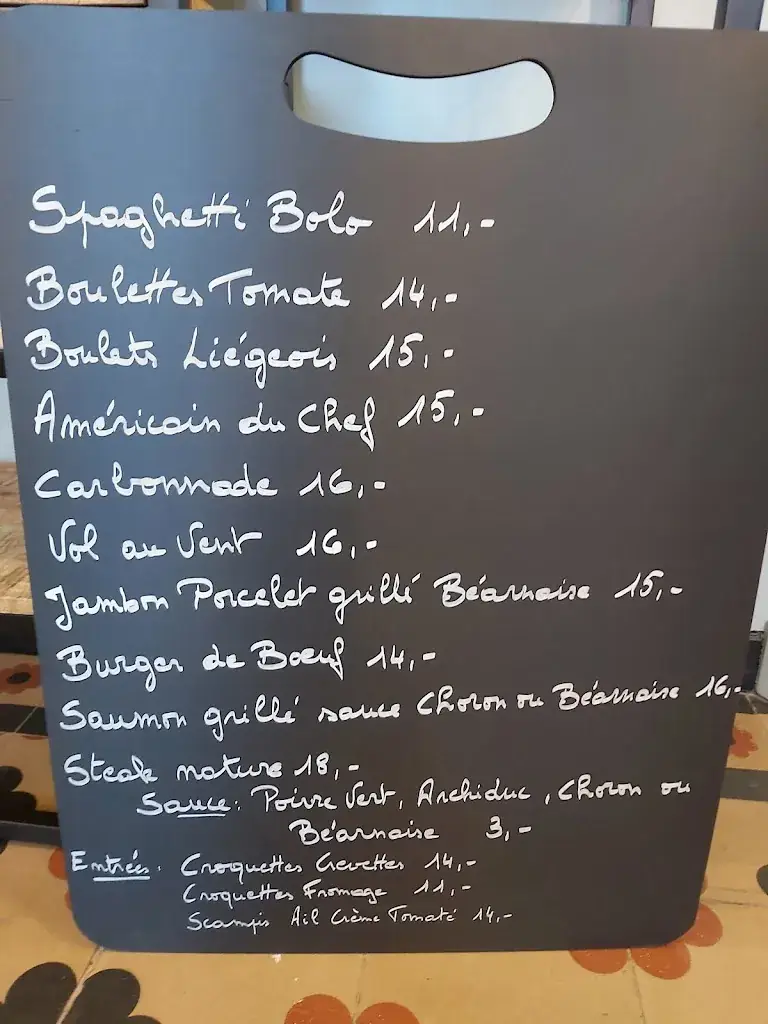 Spaghetti Bolo 11,-
Boulettes Tomate 14,-
Boulets Liégeois 15,-
Américain du Chef 15,-
Carbonnade 16,-
Vol au Vent 16,-
Jambon Porcelet grillé Béarnaise 15,-
Burger de Boeuf 14,-
Saumon grillé sauce Choron ou Béarnaise 16,-
Steak nature 18,-
Sauce: Poivre Vert, Archiduc, Choron ou
Béarnaise 3,-
Entrées: Croquettes Crevettes 14,-
Croquettes Fromage 11,-
Scampis Ail Crème Tomaté 14,-